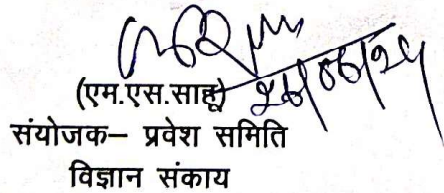 (एम.एस.साहू)
संयोजक– प्रवेश समिति
विज्ञान संकाय